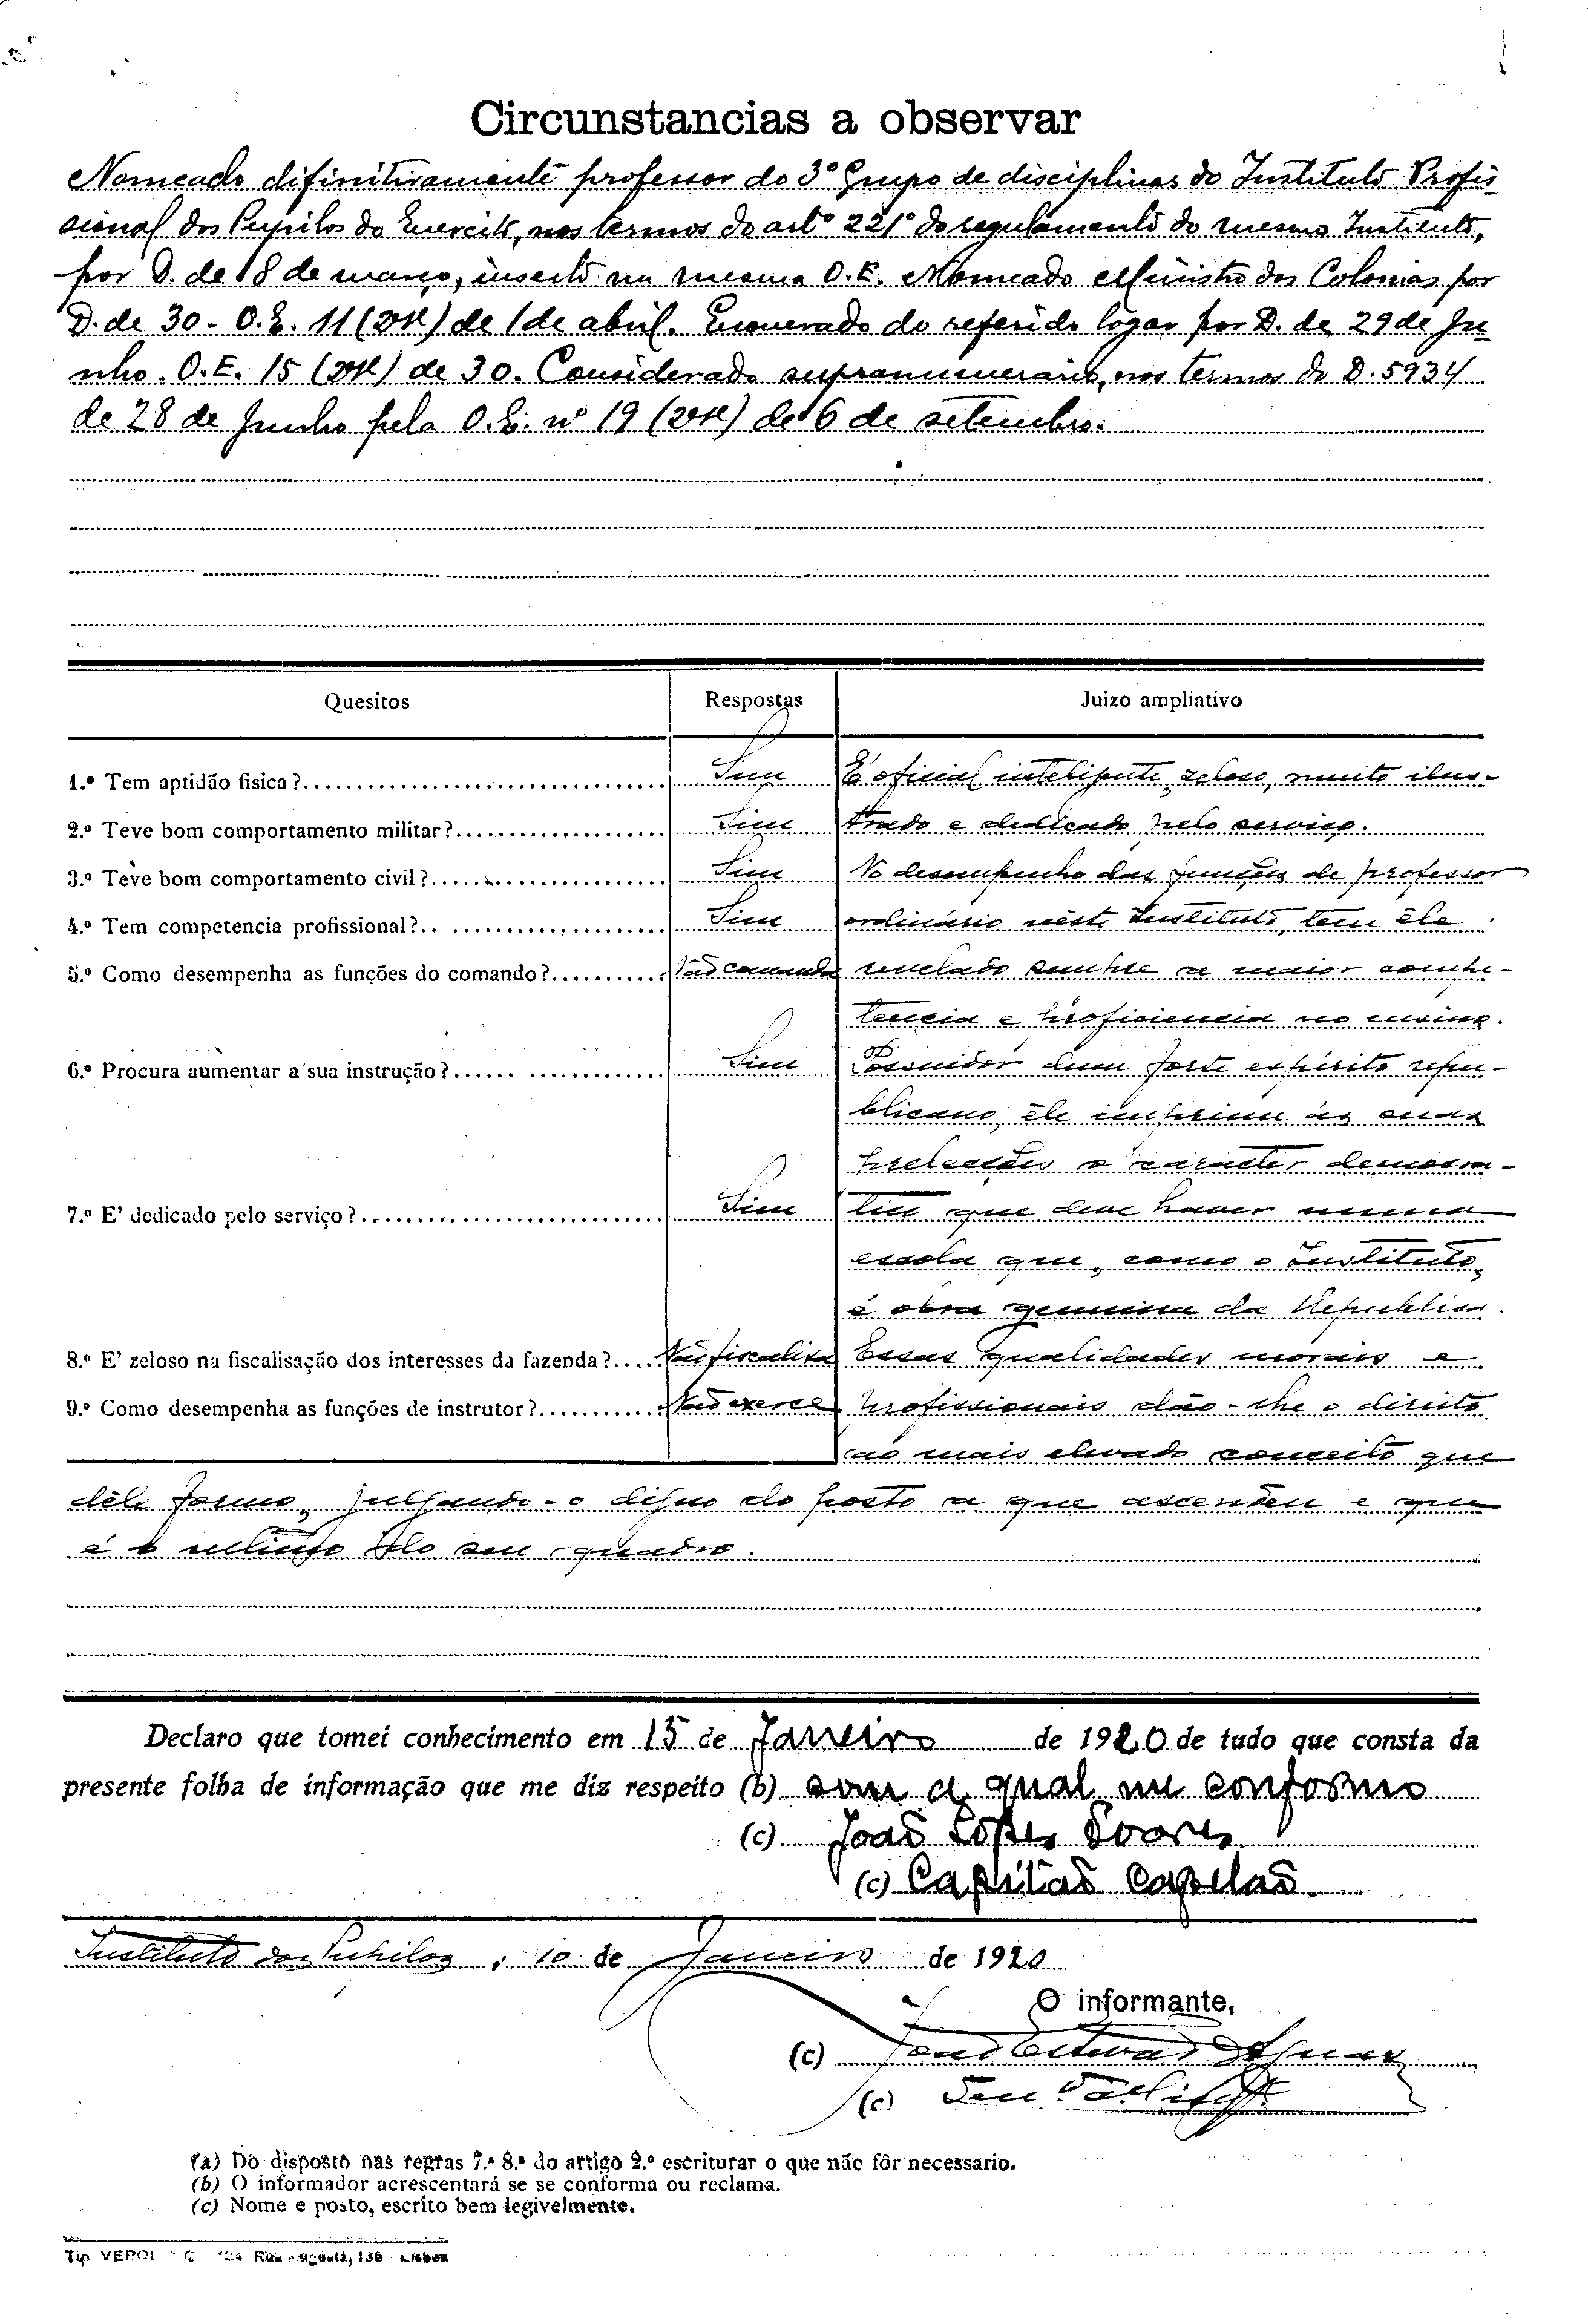 Circunstancias a observar
Nomeado difinitivamente professor do 3º Grupo de disciplinas do Instituto Profis
sional dos Pupilos do Exercito, nos termos do artº 221º do regulamento do mesmo Instituto,
por D. de 8 de março, inserto na mesma O.E. Nomeado Ministro das Colonias por
D. de 30 - O.E. 11 (2ª) de 1 de abril. Exonerado do referido logar por D. de 29 de Ju
nho. O.E. 15 (2ª) de 30. Considerado supranumerario, nos termos do D. 5934
de 28 de Junho pela O.E. nº 19 (2ª) de 6 de setembro.
Quesitos Respostas Juizo ampliativo
1.º Tem aptidão fisica? Sim É oficial inteligente, zeloso, muito ilus-
2.º Teve bom comportamento militar? Sim trado e dedicado pelo serviço.
3.º Teve bom comportamento civil? Sim No desempenho das funções de professor
4.º Tem competencia profissional? Sim ordinário nêste Instituto, tem êle
5.º Como desempenha as funções do comando? Não comanda revelado sempre a maior compe-
tencia e proficiencia no ensino.
6.º Procura aumentar a sua instrução? Sim Possuidor dum forte espírito repu-
blicano, êle imprime ás suas
prelecções o caracter democra-
7.º E' dedicado pelo serviço? Sim tico que deve haver numa
escola que, como o Instituto,
é obra genuina da Republica.
8.º E' zeloso na fiscalisação dos interesses da fazenda? Não fiscaliza Essas qualidades morais e
9.º Como desempenha as funções de instrutor? Não exerce profissionais dão-lhe o direito
ao mais elevado conceito que
dêle formo, julgando-o digno do posto a que ascendeu e que
é o do seu quadro.
Declaro que tomei conhecimento em 15 de Janeiro de 1920 de tudo que consta da
presente folha de informação que me diz respeito (b) com a qual me conformo
(c) João Lopes Soares
(c) Capitão Capelão
Instituto dos Pupilos, 10 de Janeiro de 1920
O informante,
(c)
(c)
(a) Do disposto nas regras 7.ª 8.ª do artigo 2.º escriturar o que não fôr necessario.
(b) O informador acrescentará se se conforma ou reclama.
(c) Nome e posto, escrito bem legivelmente.
Tip. Rua Augusta, Lisboa